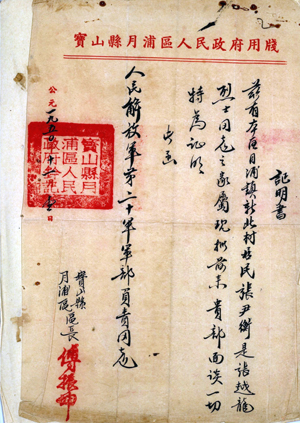 寶山縣月浦區人民政府用牋
証明書
茲有本區月浦鎮新北村居民張尹衡是張越龍
烈士同志之家屬現擬前來貴部面談一切
特為証明
此函
人民解放軍第二十軍軍部負責同志
寶山縣
月浦區區長
傅振
公元一九五 年十 月 日
寶山縣月
浦區人民
政府印